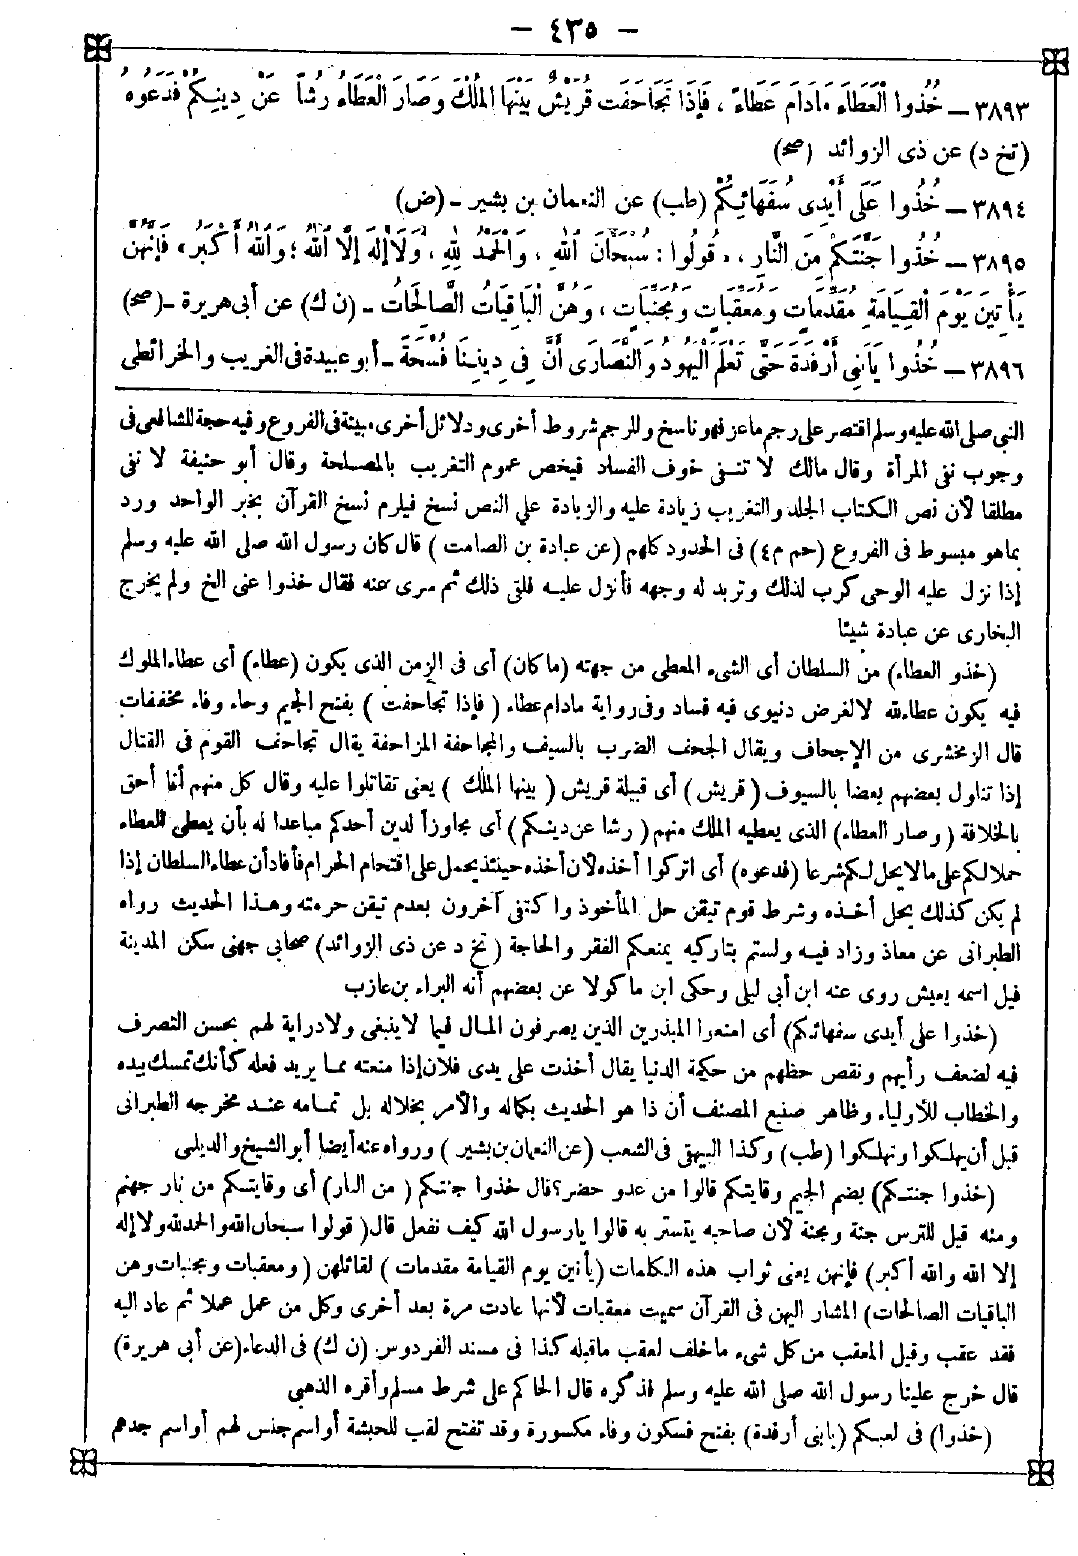 — ٤٣٥ —
٣٨٩٣ — خُذُوا الْعَطَاءَ مَادَامَ عَطَاءً ، فَإِذَا تَجَاحَفَتْ قُرَيْشٌ بَيْنَهَا الْمُلْكَ وَصَارَ الْعَطَاءُ رُشًا عَنْ دِينِكُمْ فَدَعُوهُ
(تخ د) عن ذى الزوائد (صح)
٣٨٩٤ — خُذُوا عَلَى أَيْدِى سُفَهَائِكُمْ (طب) عن النعمان بن بشير ـ (ض)
٣٨٩٥ — خُذُوا جُنَّتَكُمْ مِنَ النَّارِ ، قُولُوا : سُبْحَانَ اللهِ ، وَالْحَمْدُ لِلهِ ، وَلَا إِلهَ إِلَّا اللهُ ؛ وَاللهُ أَكْبَرُ ، فَإِنَّهُنَّ
يَأْتِينَ يَوْمَ الْقِيَامَةِ مُقَدِّمَاتٍ وَمُعَقِّبَاتٍ وَمُجَنِّبَاتٍ ، وَهُنَّ الْبَاقِيَاتُ الصَّالِحَاتُ ـ (ن ك) عن أبى هريرة ـ (صح)
٣٨٩٦ — خُذُوا يَابَنِى أَرْفِدَةَ حَتَّى تَعْلَمَ الْيَهُودُ وَالنَّصَارَى أَنَّ فِى دِينِنَا فُسْحَةً ـ أبو عبيدة فى الغريب والخرائطى
النبى صلى الله عليه وسلم اقتصر على رجم ماعز فهو ناسخ وللرجم شروط أخرى ودلائل أخرى مبينة فى الفروع وفيه حجة للشافعى فى
وجوب نفى المرأة وقال مالك لا تنفى خوف الفساد فيخص عموم التغريب بالمصلحة وقال أبو حنيفة لا نفى
مطلقا لأن نص الكتاب الجلد والتغريب زيادة عليه والزيادة على النص نسخ فيلزم نسخ القرآن بخبر الواحد ورد
بما هو مبسوط فى الفروع (حم م ٤) فى الحدود كلهم (عن عبادة بن الصامت) قال كان رسول الله صلى الله عليه وسلم
إذا نزل عليه الوحى كرب لذلك وتربد له وجهه فأنزل عليه فلقى ذلك ثم سرى عنه فقال خذوا عنى الخ ولم يخرج
البخارى عن عبادة شيئا
(خذو العطاء) من السلطان أى الشىء المعطى من جهته (ما كان) أى فى الزمن الذى يكون (عطاء) أى عطاء الملوك
فيه يكون عطاء لله لا لغرض دنيوى فيه فساد وفى رواية مادام عطاء (فإذا تجاحفت) بفتح الجيم وحاء وفاء مخففات
قال الزمخشرى من الإجحاف ويقال الجحف الضرب بالسيف والمجاحفة المزاحفة يقال تجاحف القوم فى القتال
إذا تناول بعضهم بعضا بالسيوف (قريش) أى قبيلة قريش (بينها الملك) يعنى تقاتلوا عليه وقال كل منهم أنا أحق
بالخلافة (وصار العطاء) الذى يعطيه الملك منهم (رشا عن دينكم) أى مجاوزاً لدين أحدكم مباعدا له بأن يعطى العطاء
حملا لكم على ما لا يحل لكم شرعا (فدعوه) أى اتركوا أخذه لأن أخذه حينئذ يحمل على اقتحام الحرام فأفاد أن عطاء السلطان إذا
لم يكن كذلك يحل أخذه وشرط قوم تيقن حل المأخوذ واكتفى آخرون بعدم تيقن حرمته وهذا الحديث رواه
الطبرانى عن معاذ وزاد فيه ولستم بتاركيه يمنعكم الفقر والحاجة (تخ د عن ذى الزوائد) صحابى جهنى سكن المدينة
قيل اسمه يعيش روى عنه ابن أبى ليلى وحكى ابن ماكولا عن بعضهم أنه البراء بن عازب
(خذوا على أيدى سفهائكم) أى امنعوا المبذرين الذين يصرفون المال فيما لا ينبغى ولا دراية لهم بحسن التصرف
فيه لضعف رأيهم ونقص حظهم من حكمة الدنيا يقال أخذت على يدى فلان إذا منعته مما يريد فعله كأنك تمسك بيده
والخطاب للأولياء وظاهر صنيع المصنف أن ذا هو الحديث بكماله والأمر بخلاله بل تمامه عند مخرجه الطبرانى
قبل أن يهلكوا وتهلكوا (طب) وكذا البيهقى فى الشعب (عن النعمان بن بشير) ورواه عنه أيضا أبو الشيخ والديلمى
(خذوا جنتكم) بضم الجيم وقايتكم قالوا من عدو حضر؟ قال خذوا جنتكم (من النار) أى وقايتكم من نار جهنم
ومنه قيل للترس جنة ومجنة لأن صاحبه يتستر به قالوا يا رسول الله كيف نفعل قال (قولوا سبحان الله والحمد لله ولا إله
إلا الله والله أكبر) فإنهن يعنى ثواب هذه الكلمات (يأتين يوم القيامة مقدمات) لقائلهن (ومعقبات ومجنبات وهن
الباقيات الصالحات) المشار اليهن فى القرآن سميت معقبات لأنها عادت مرة بعد أخرى وكل من عمل عملا ثم عاد اليه
فقد عقب وقيل المعقب من كل شىء ما خلف لعقب ما قبله كذا فى مسند الفردوس (ن ك) فى الدعاء (عن أبى هريرة)
قال خرج علينا رسول الله صلى الله عليه وسلم فذكره قال الحاكم على شرط مسلم وأقره الذهبى
(خذوا) فى لعبكم (يابنى أرفدة) بفتح فسكون وفاء مكسورة وقد تفتح لقب للحبشة أو اسم جنس لهم أو اسم جدهم